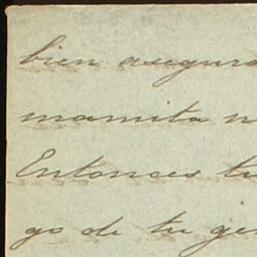 bien asegura
mamita n
Entonces tu
go de tu gen